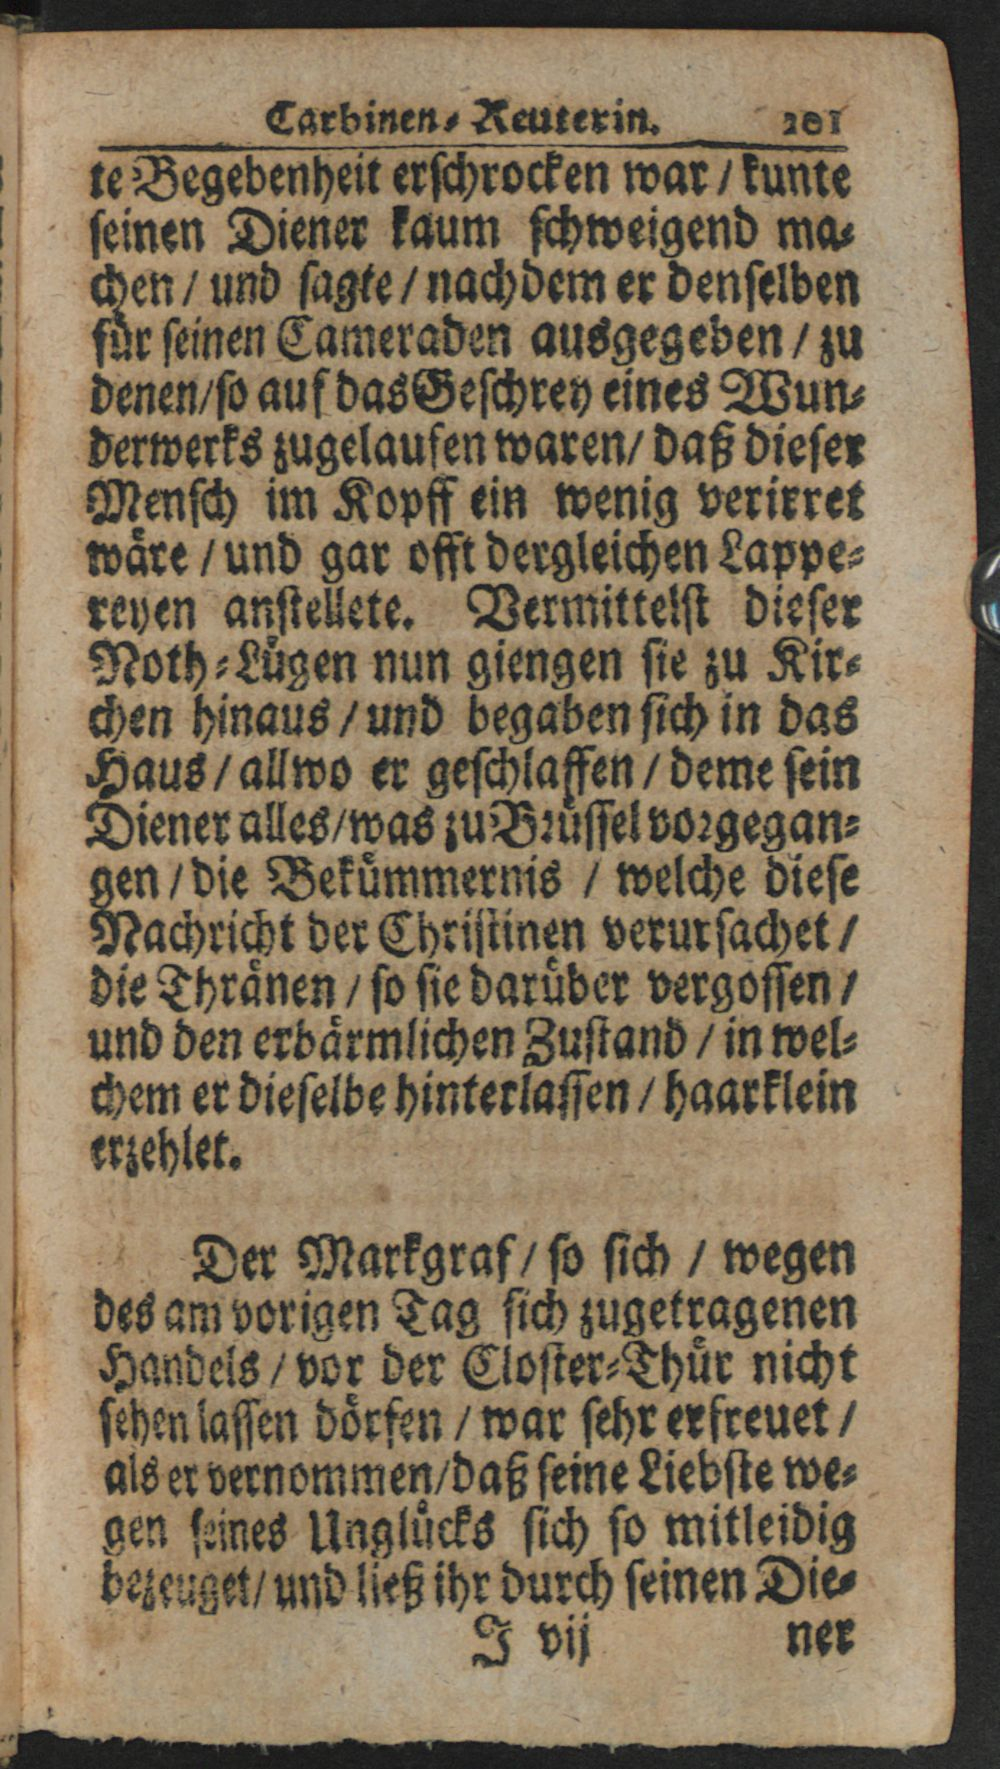 Carbinen-Reuterin. 201
te Begebenheit erschrocken war / kunte
seinen Diener kaum schweigend ma-
chen / und sagte / nachdem er denselben
für seinen Cameraden ausgegeben / zu
denen/so auf das Geschrey eines Wun-
derwerks zugelaufen waren/ daß dieser
Mensch im Kopff ein wenig verirret
wäre / und gar offt dergleichen Lappe-
reyen anstellete. Vermittelst dieser
Noth-Lügen nun giengen sie zu Kir-
chen hinaus / und begaben sich in das
Haus / allwo er geschlaffen / deme sein
Diener alles/was zu Brüssel vorgegan-
gen / die Bekümmernis / welche diese
Nachricht der Christinen verursachet /
die Thränen / so sie darüber vergossen /
und den erbärmlichen Zustand / in wel-
chem er dieselbe hinterlassen / haarklein
erzehlet.
Der Markgraf / so sich / wegen
des am vorigen Tag sich zugetragenen
Handels / vor der Closter-Thür nicht
sehen lassen dörfen / war sehr erfreuet /
als er vernommen/daß seine Liebste we-
gen seines Unglücks sich so mitleidig
bezeuget/ und ließ ihr durch seinen Die-
J vij ner